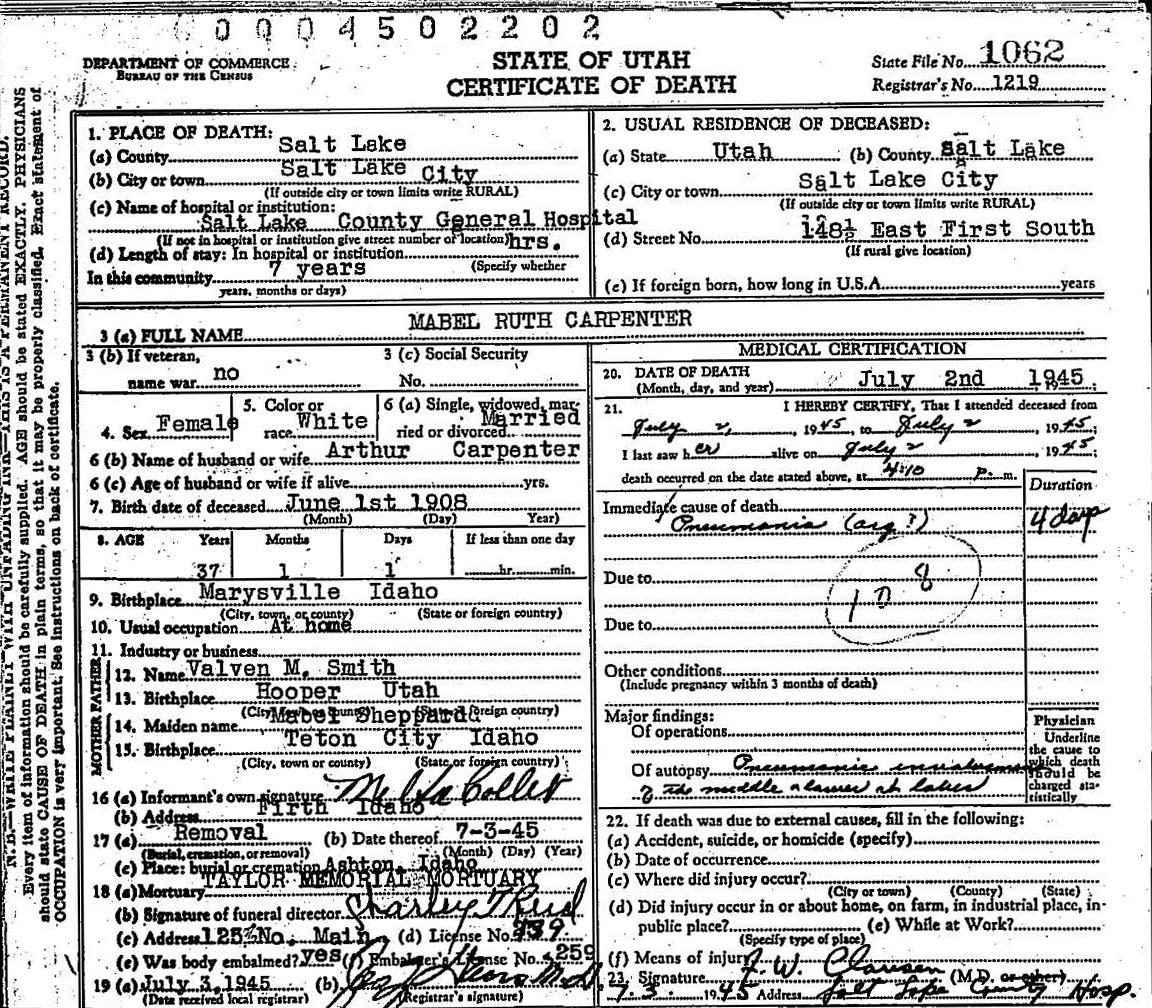 0004502202
DEPARTMENT OF COMMERCE
BUREAU OF THE CENSUS
STATE OF UTAH
CERTIFICATE OF DEATH
State File No. 1062
Registrar's No. 1219
N. B.—WRITE PLAINLY WITH UNFADING INK—THIS IS A PERMANENT RECORD.
Every item of information should be carefully supplied. AGE should be stated EXACTLY. PHYSICIANS
should state CAUSE OF DEATH in plain terms, so that it may be properly classified. Exact statement of
OCCUPATION is very important. See instructions on back of certificate.
1. PLACE OF DEATH:
(a) County Salt Lake
(b) City or town Salt Lake City
(If outside city or town limits write RURAL)
(c) Name of hospital or institution:
Salt Lake County General Hospital
(If not in hospital or institution give street number or location)
(d) Length of stay: In hospital or institution hrs.
(Specify whether
In this community 7 years
years, months or days)
2. USUAL RESIDENCE OF DECEASED:
(a) State Utah (b) County Salt Lake
(c) City or town Salt Lake City
(If outside city or town limits write RURAL)
(d) Street No. 148½ East First South
(If rural give location)
(e) If foreign born, how long in U.S.A. years
3 (a) FULL NAME MABEL RUTH CARPENTER
3 (b) If veteran,
name war no
3 (c) Social Security
No.
4. Sex Female
5. Color or
race White
6 (a) Single, widowed, mar-
ried or divorced Married
6 (b) Name of husband or wife Arthur Carpenter
6 (c) Age of husband or wife if alive yrs.
7. Birth date of deceased June 1st 1908
(Month) (Day) Year)
8. AGE Years Months Days If less than one day
37 1 1 hr. min.
9. Birthplace Marysville Idaho
(City, town, or county) (State or foreign country)
10. Usual occupation At home
11. Industry or business
FATHER
12. Name Valven M. Smith
13. Birthplace Hooper Utah
(City, town or county) (State or foreign country)
MOTHER
14. Maiden name Mabel Sheppard
15. Birthplace Teton City Idaho
(City, town or county) (State or foreign country)
16 (a) Informant's own signature
(b) Address Firth Idaho
17 (a) Removal (b) Date thereof 7-3-45
(Burial, cremation, or removal) (Month) (Day) (Year)
(c) Place: burial or cremation Ashton, Idaho
18 (a) Mortuary TAYLOR MEMORIAL MORTUARY
(b) Signature of funeral director Charley T Reid
(c) Address 125 No. Main (d) License No. 939
(e) Was body embalmed? yes (f) Embalmer's License No. 259
19 (a) July 3, 1945 (b)
(Date received local registrar) (Registrar's signature)
MEDICAL CERTIFICATION
20. DATE OF DEATH
(Month, day, and year) July 2nd 1945
21. I HEREBY CERTIFY, That I attended deceased from
July 2, 1945, to July 2 1945;
I last saw her alive on July 2 1945;
death occurred on the date stated above, at 4:10 P. m.
Duration
Immediate cause of death
Pneumonia 4 days
Due to
108
Due to
Other conditions
(Include pregnancy within 3 months of death)
Major findings:
Of operations
Of autopsy Pneumonia
Physician
Underline
the cause to
which death
should be
charged sta-
tistically
22. If death was due to external causes, fill in the following:
(a) Accident, suicide, or homicide (specify)
(b) Date of occurrence
(c) Where did injury occur?
(City or town) (County) (State)
(d) Did injury occur in or about home, on farm, in industrial place, in-
public place? (e) While at Work?
(Specify type of place)
(f) Means of injury
23. Signature F. W. Clausen (M.D. or other)
7-3. 1945 Address Salt Lake County Hosp.